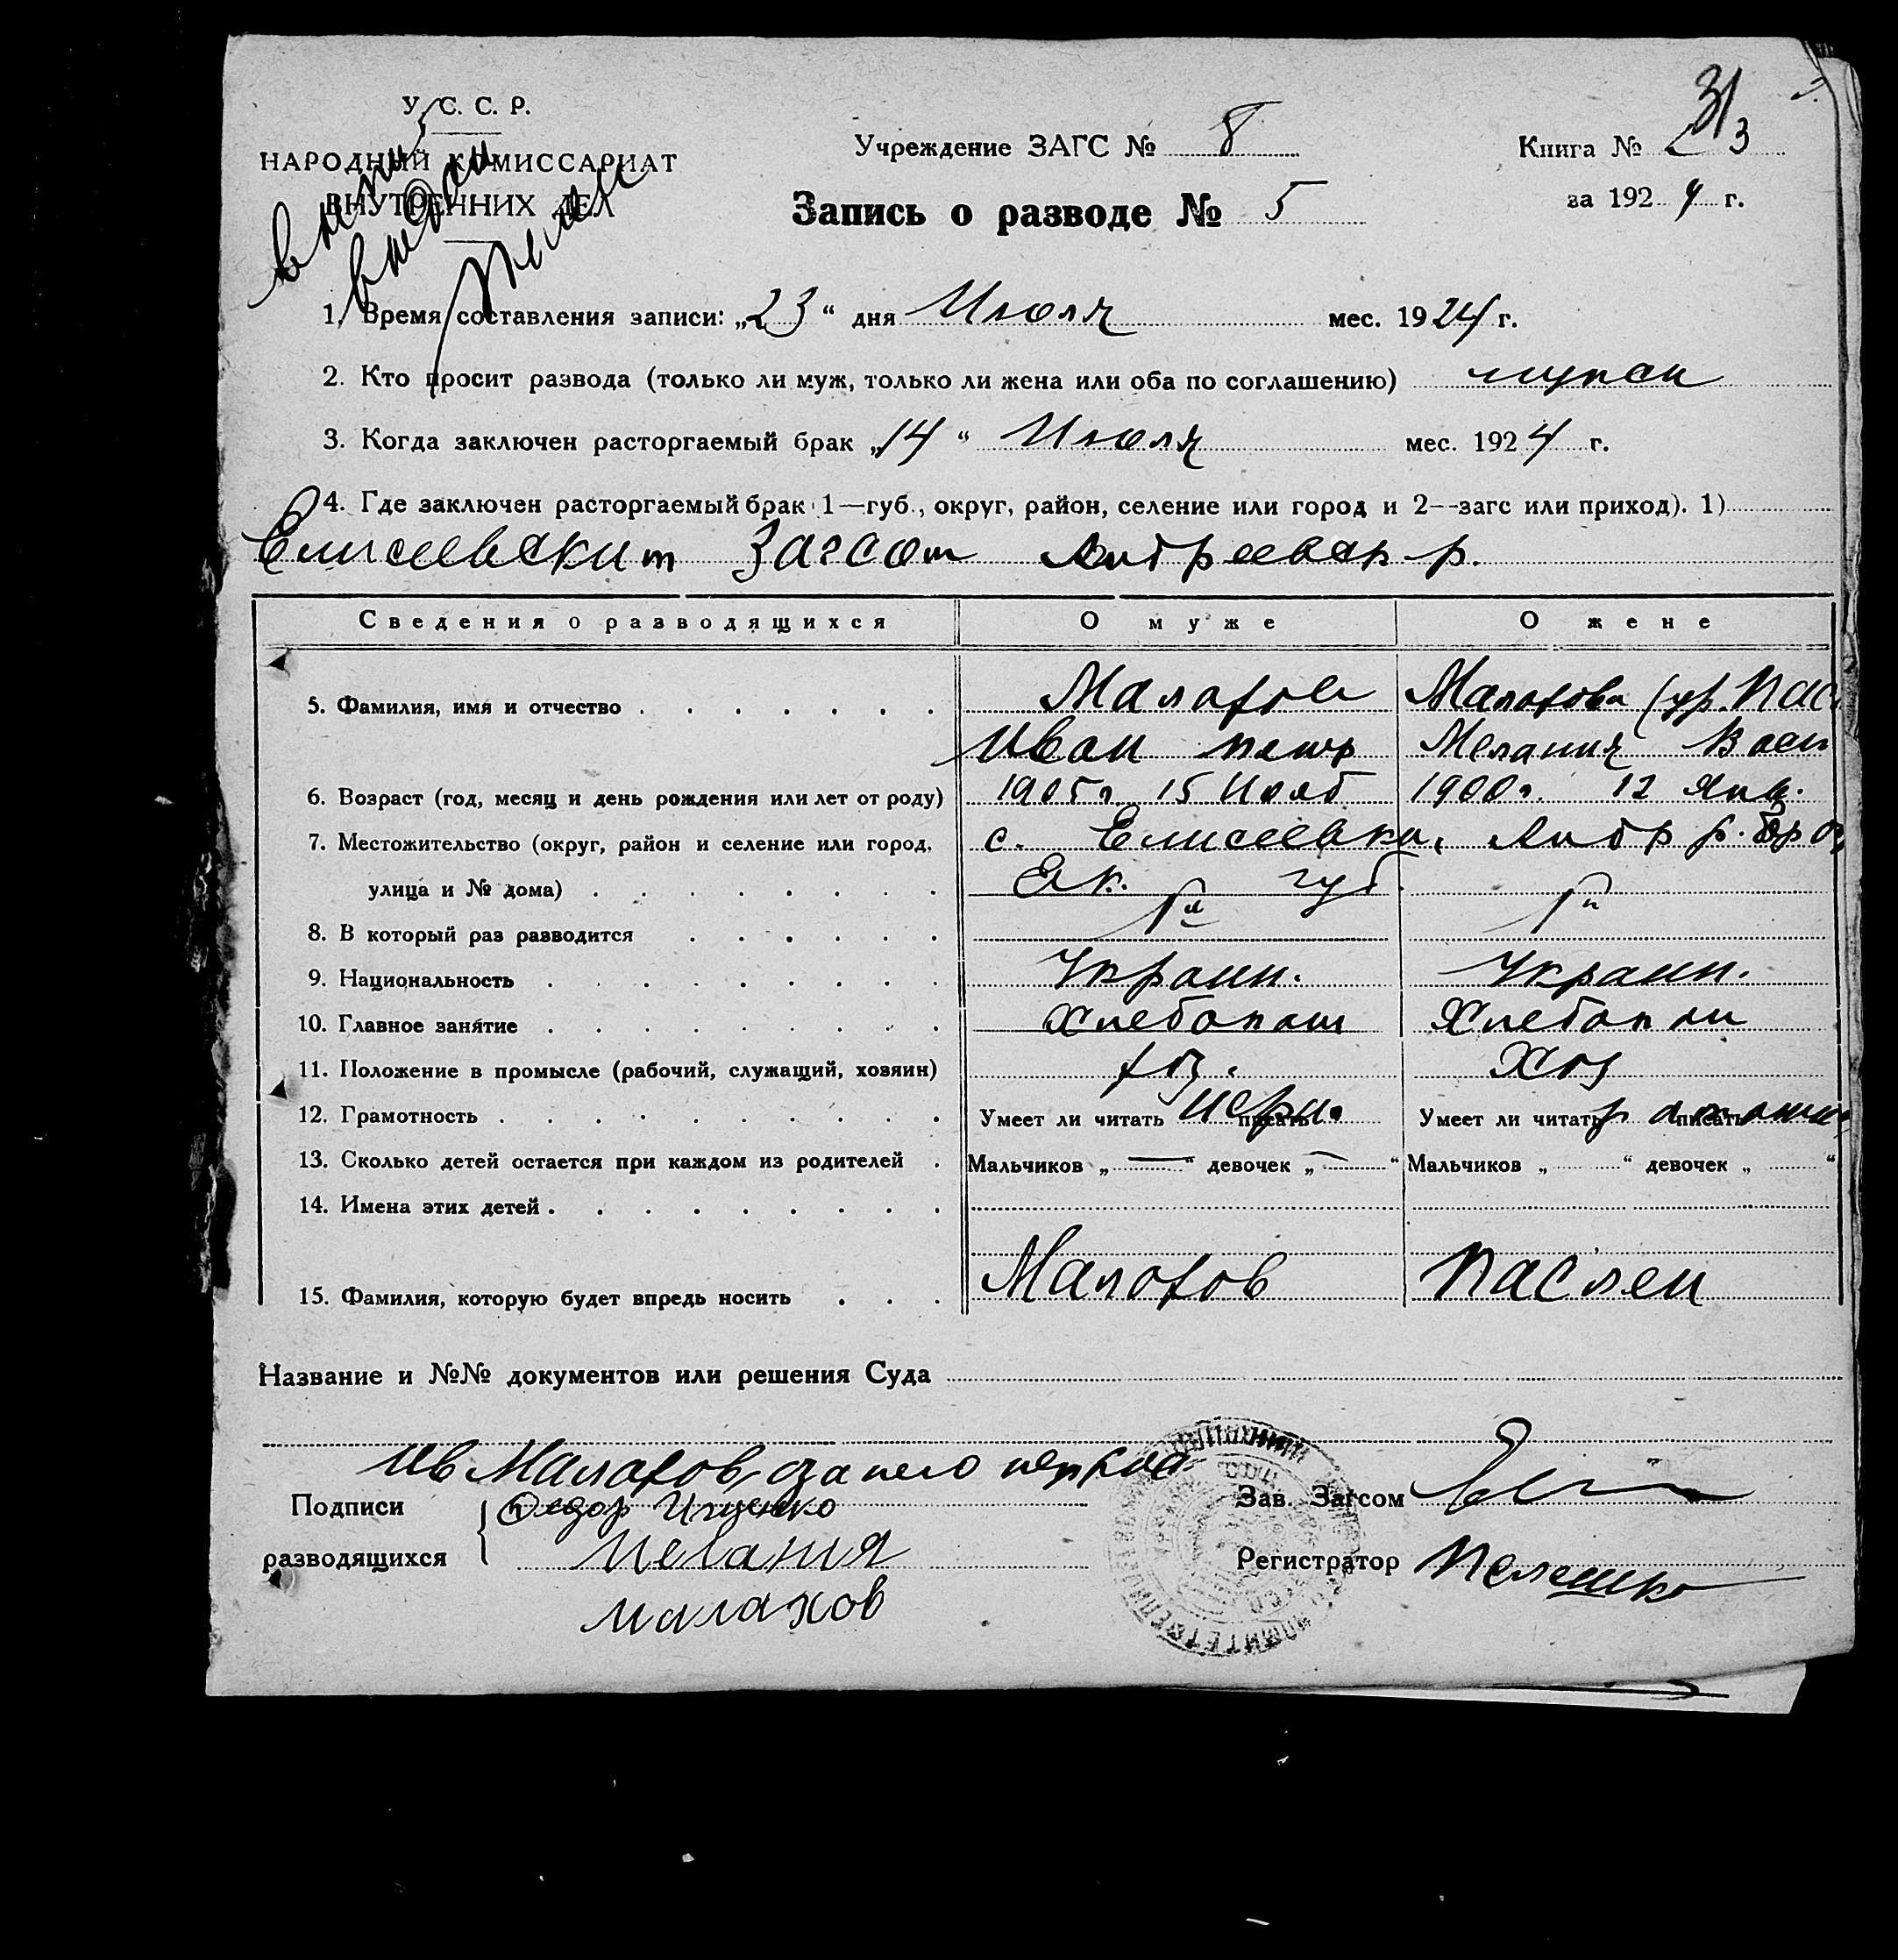 У. С. С. Р.
НАРОДНЫЙ КОМИССАРИАТ
ВНУТРЕННИХ ДЕЛ
Учреждение ЗАГС № 8
Запись о разводе № 5
31
Книга № 3
за 1924 г.
1. Время составления записи: „23“ дня Июля мес. 1924 г.
2. Кто просит развода (только ли муж, только ли жена или оба по соглашению)
3. Когда заключен расторгаемый брак „14“ Июля мес. 1924 г.
4. Где заключен расторгаемый брак 1—губ., округ, район, селение или город и 2--загс или приход). 1)
Елисеевским Загсом Андреевск р.
Сведения о разводящихся О муже О жене
5. Фамилия, имя и отчество Малахов Малахова (ур. Пас
Иван петр Мелания Васи
6. Возраст (год, месяц и день рождения или лет от роду) 1905 г. 15 Нояб 1900 г. 12 Янв.
7. Местожительство (округ, район и селение или город, с. Елисеевка, Андр р.
улица и № дома) Ек. губ.
8. В который раз разводится 1й 1й
9. Национальность Украин. Украин.
10. Главное занятие Хлебопаш Хлебопаш
11. Положение в промысле (рабочий, служащий, хозяин) хоз. Хоз
12. Грамотность Умеет ли читать писать Умеет ли читать писать
13. Сколько детей остается при каждом из родителей Мальчиков „—“ девочек „—“ Мальчиков „ “ девочек „ “
14. Имена этих детей
15. Фамилия, которую будет впредь носить Малахов Паслен
Название и №№ документов или решения Суда
Ив Малахов, за него
Подписи Федор Ищенко
разводящихся Мелания
малахов
Зав. Загсом
Регистратор Пелешко